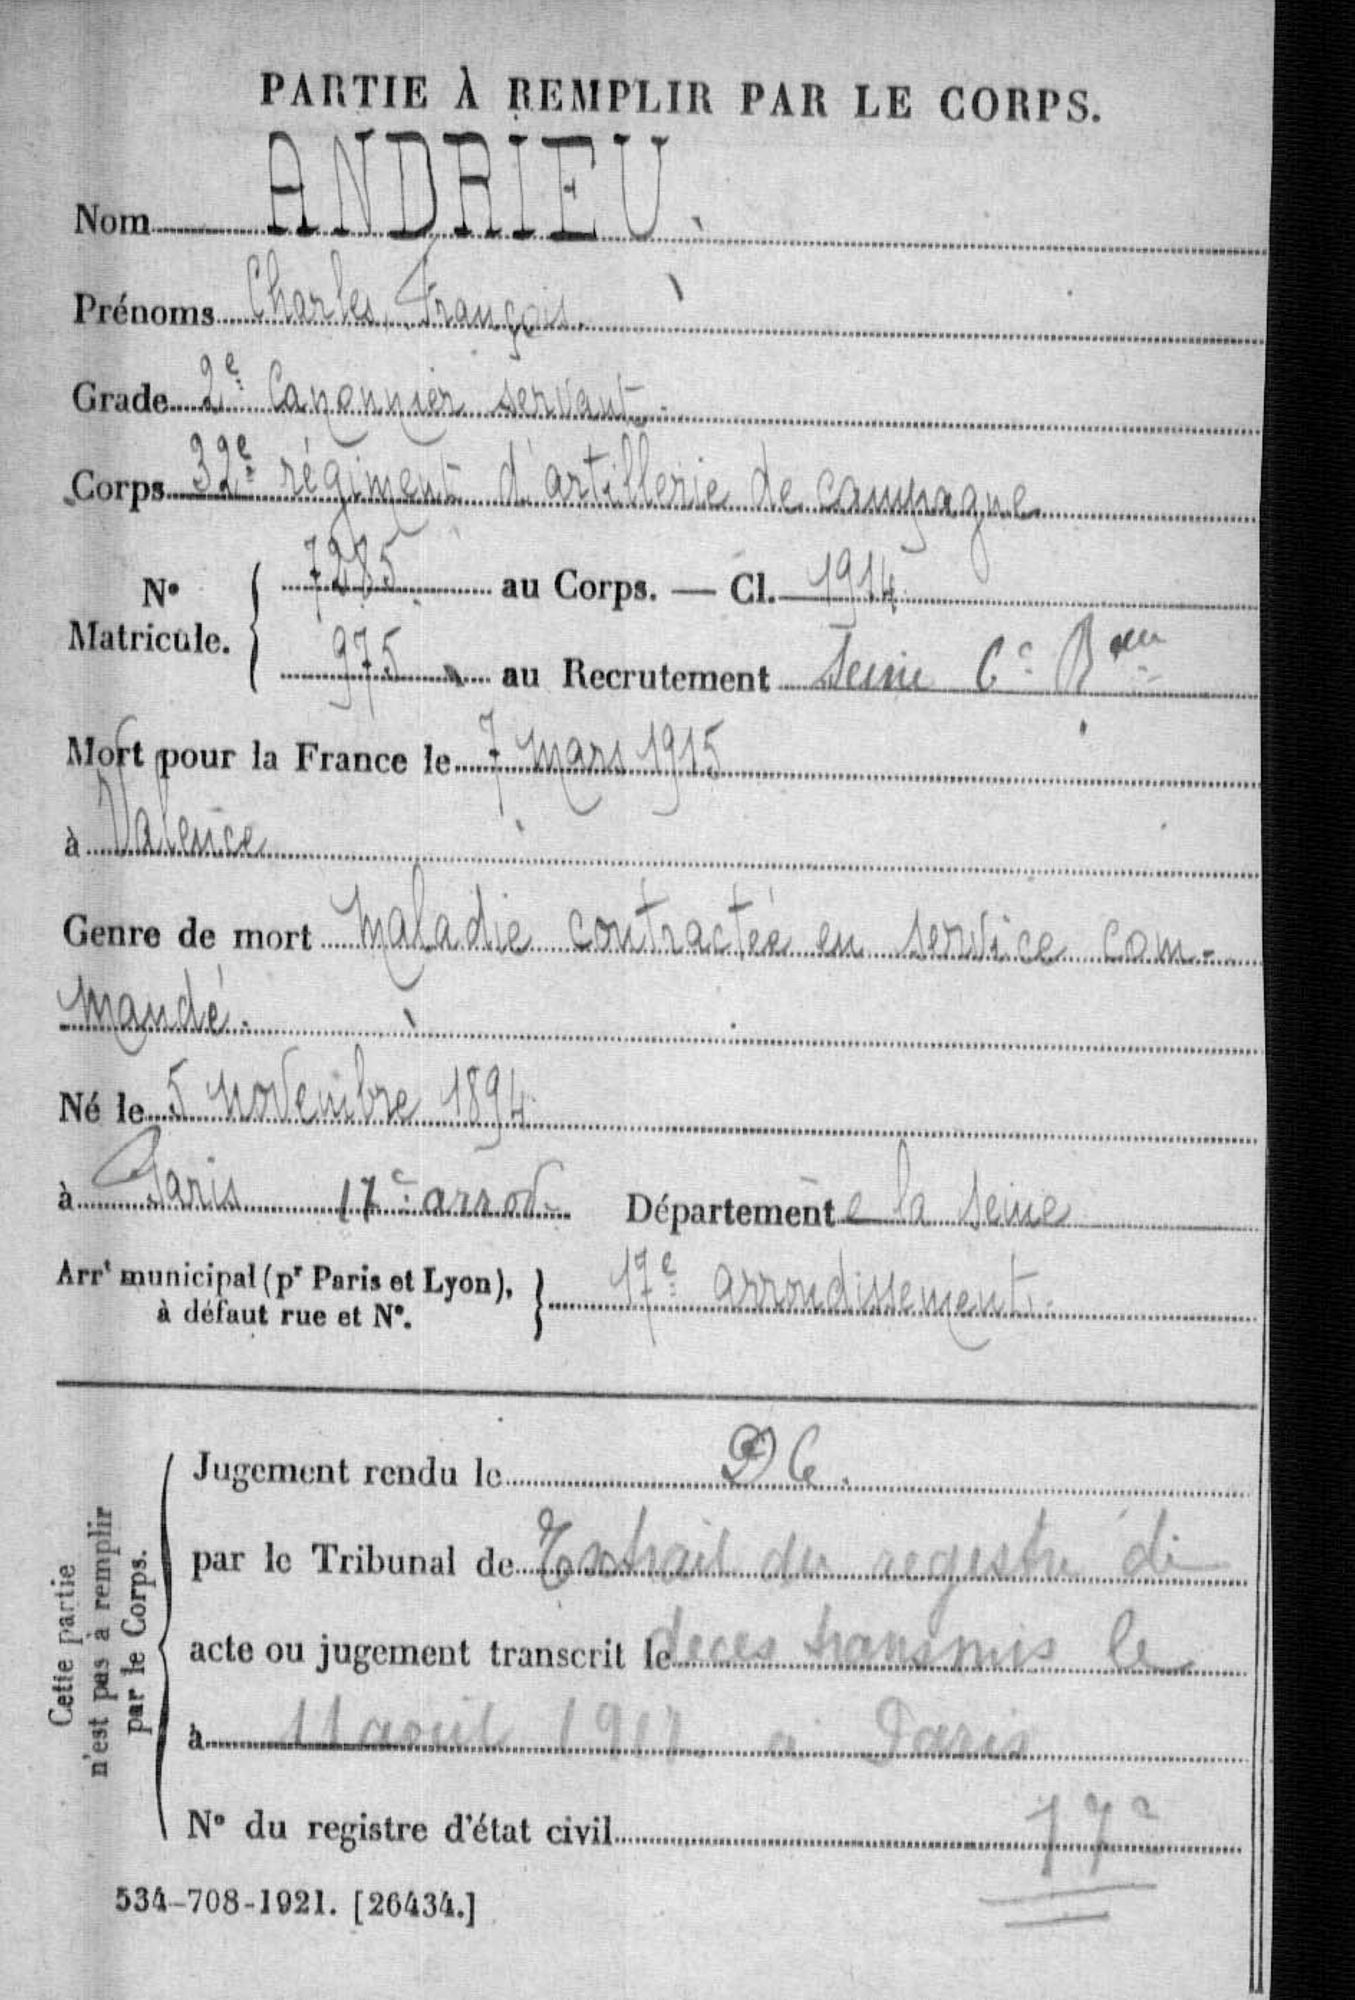 PARTIE À REMPLIR PAR LE CORPS.
Nom ANDRIEU
Prénoms Charles, François.
Grade 2e Canonnier servant.
Corps 32e régiment d'artillerie de campagne
No Matricule. { 7285 au Corps. — Cl. 1914
975 au Recrutement Seine 6e Beau
Mort pour la France le 7 mars 1915
à Valence
Genre de mort Maladie contractée en service com-
mandé.
Né le 5 novembre 1894
à Paris 17e arrodt Département de la Seine
Arrt municipal (pr Paris et Lyon), à défaut rue et No. } 17e arrondissement.
Cette partie n'est pas à remplir par le Corps.
Jugement rendu le D C.
par le Tribunal de Extrait du registre de
acte ou jugement transcrit le décès transmis le
à 11 août 1917 à Paris
No du registre d'état civil 17e
534-708-1921. [26434.]